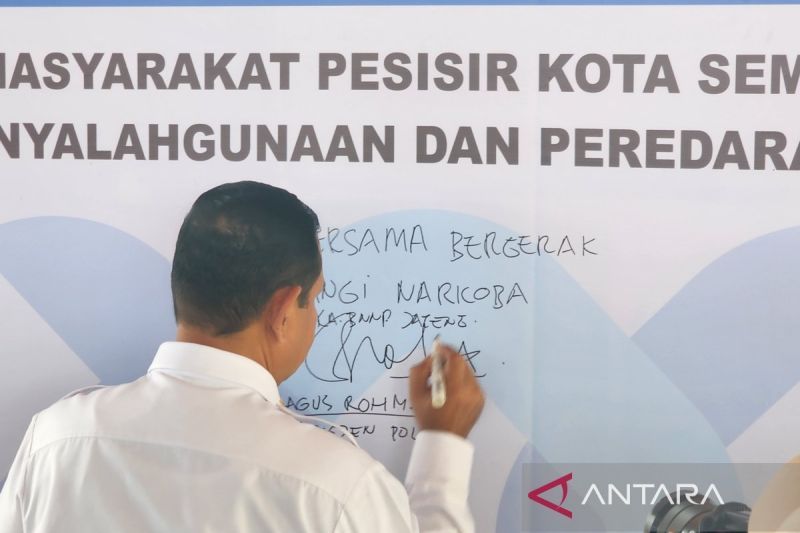 MASYARAKAT PESISIR KOTA SEM
NYALAHGUNAAN DAN PEREDARA
ERSAMA BERGERAK
NGI NARKOBA
KA. BNNP JATENG.
AGUS ROHM
JEN POL
ANTARA